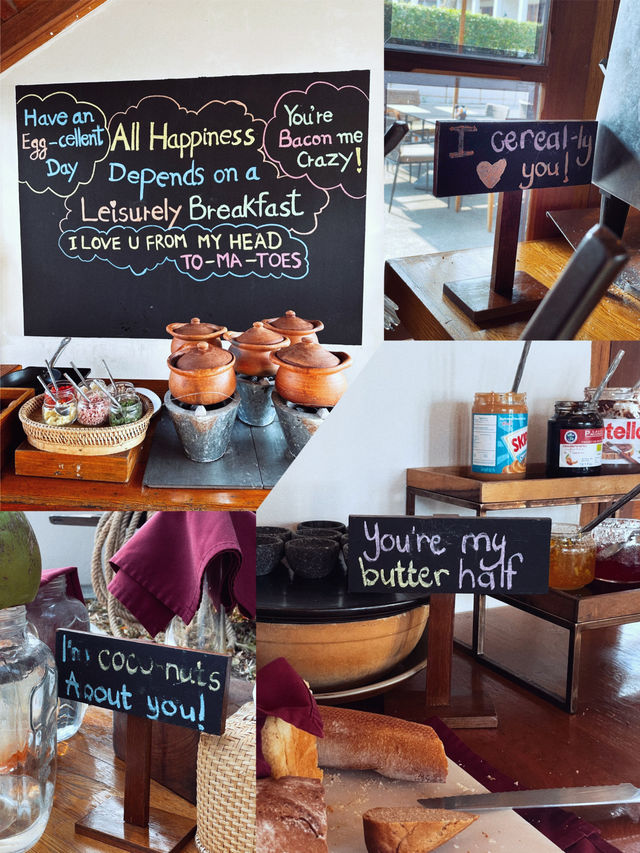 Have an
Egg-cellent
Day
All Happiness
Depends on a
Leisurely Breakfast
You're
Bacon me
Crazy!
I LOVE U FROM MY HEAD
TO-MA-TOES
I cereal-ly
♥ you!
You're my
butter half
I'm coco-nuts
About you!